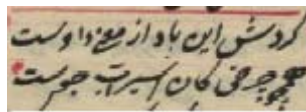 گردش این باد از معنی اوست
همچو چرخی کان اسیر آب جوست